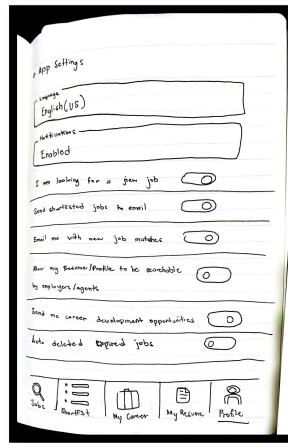 App Settings
Language
English (US)
Notifications
Enabled
I am looking for a new job
Send shortlisted jobs to email
Email me with new job matches
Allow my Resume/Profile to be searchable
by employers/agents
Send me career development opportunities
Auto deleted expired jobs
Jobs
Shortlist
My Career
My Resume
Profile